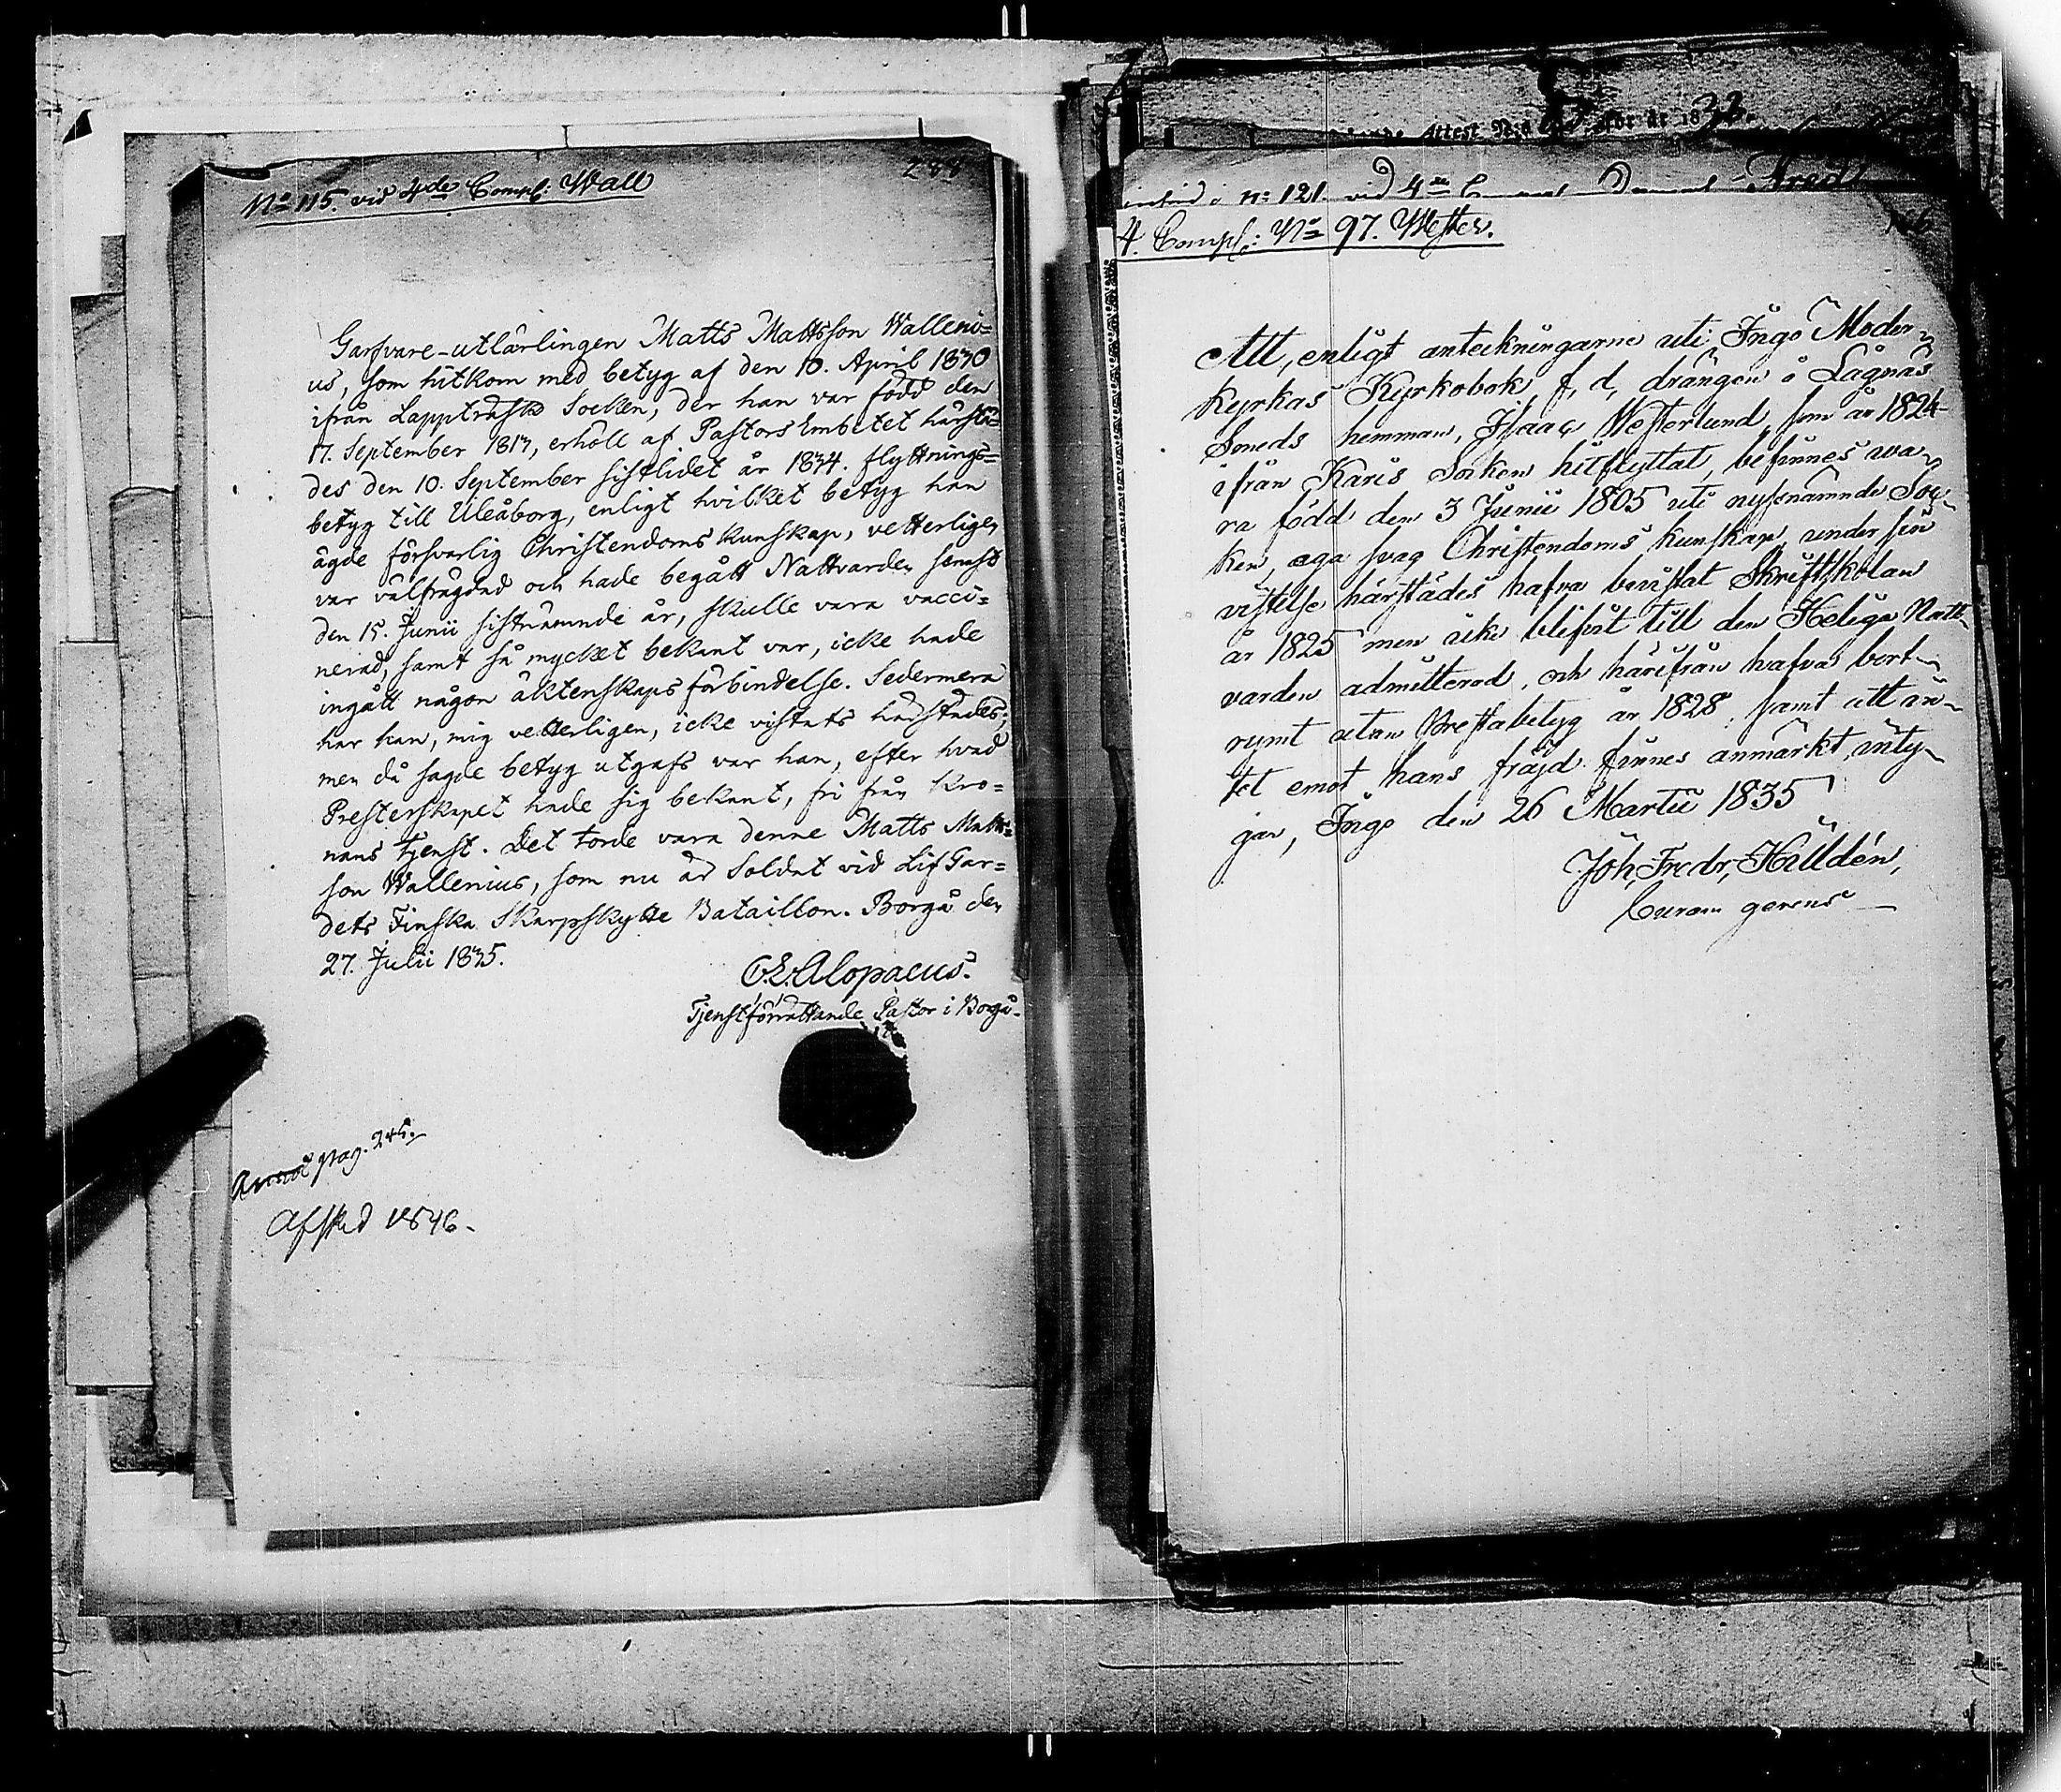 288
No 115. vid 4de Comp: Wall
Garfvare-utlärlingen Matts Mattsson Walleni=
us, som hitkom med betyg af den 10. April 1830
ifrån Lappträsk Socken, der han var född den
17. September 1813, erhöll af Pastors Embetet härstä=
des den 10. September sistlidet år 1834. flyttnings=
betyg till Uleåborg, enligt hvilket betyg han
ägde försvarlig Christendoms kunskap, vetterligen
var välfrägdad och hade begått Nattvarden senast
den 15. Junii sistnämnde år, skulle vara vacci=
nerad, samt så mycket bekant var, icke hade
ingått någon äktenskaps förbindelse. Sedermera
har han, mig vetterligen, icke vistats härstädes;
men då sagde betyg utgafs var han, efter hvad
Presterskapet hade sig bekant, fri från Kro=
nans tjenst. Det torde vara denne Matts Matts=
son Wallenius, som nu är Soldat vid Lif Gar=
dets Finska Skarpskytte Bataillon. Borgå den
27. Julii 1835.
C. E. Alopaeus.
Tjenstförrättande Pastor i Borgå.
pag. 245.
Afsked 1846.
Attest N:o för år 1833.
n: 121. vid 4de
4. Comp: No 97. Wester.
Att, enligt anteckningarne uti Ingo Moder-
kyrkas Kyrkobok f, d, drängen å Lågnäs
Smeds hemman, Isaac Westerlund som år 1824
ifrån Karis Socken hitflyttat, befinnes wa-
ra född den 3 Junii 1805 uti nyssnämnde Soc-
ken, äga svag Christendoms kunskap, under sin
vistelse härstädes hafva bevistat Skriftskolan
år 1825 men icke blifvit till den Heliga Natt-
varden admitterad, och härifrån hafva bort-
rymt utan Prestabetyg år 1828, samt att än-
tet emot hans fräjd finnes anmärkt, inty-
gar, Ingo den 26 Martii 1835
Joh, Fredr, Hilldén,
Curam gerens